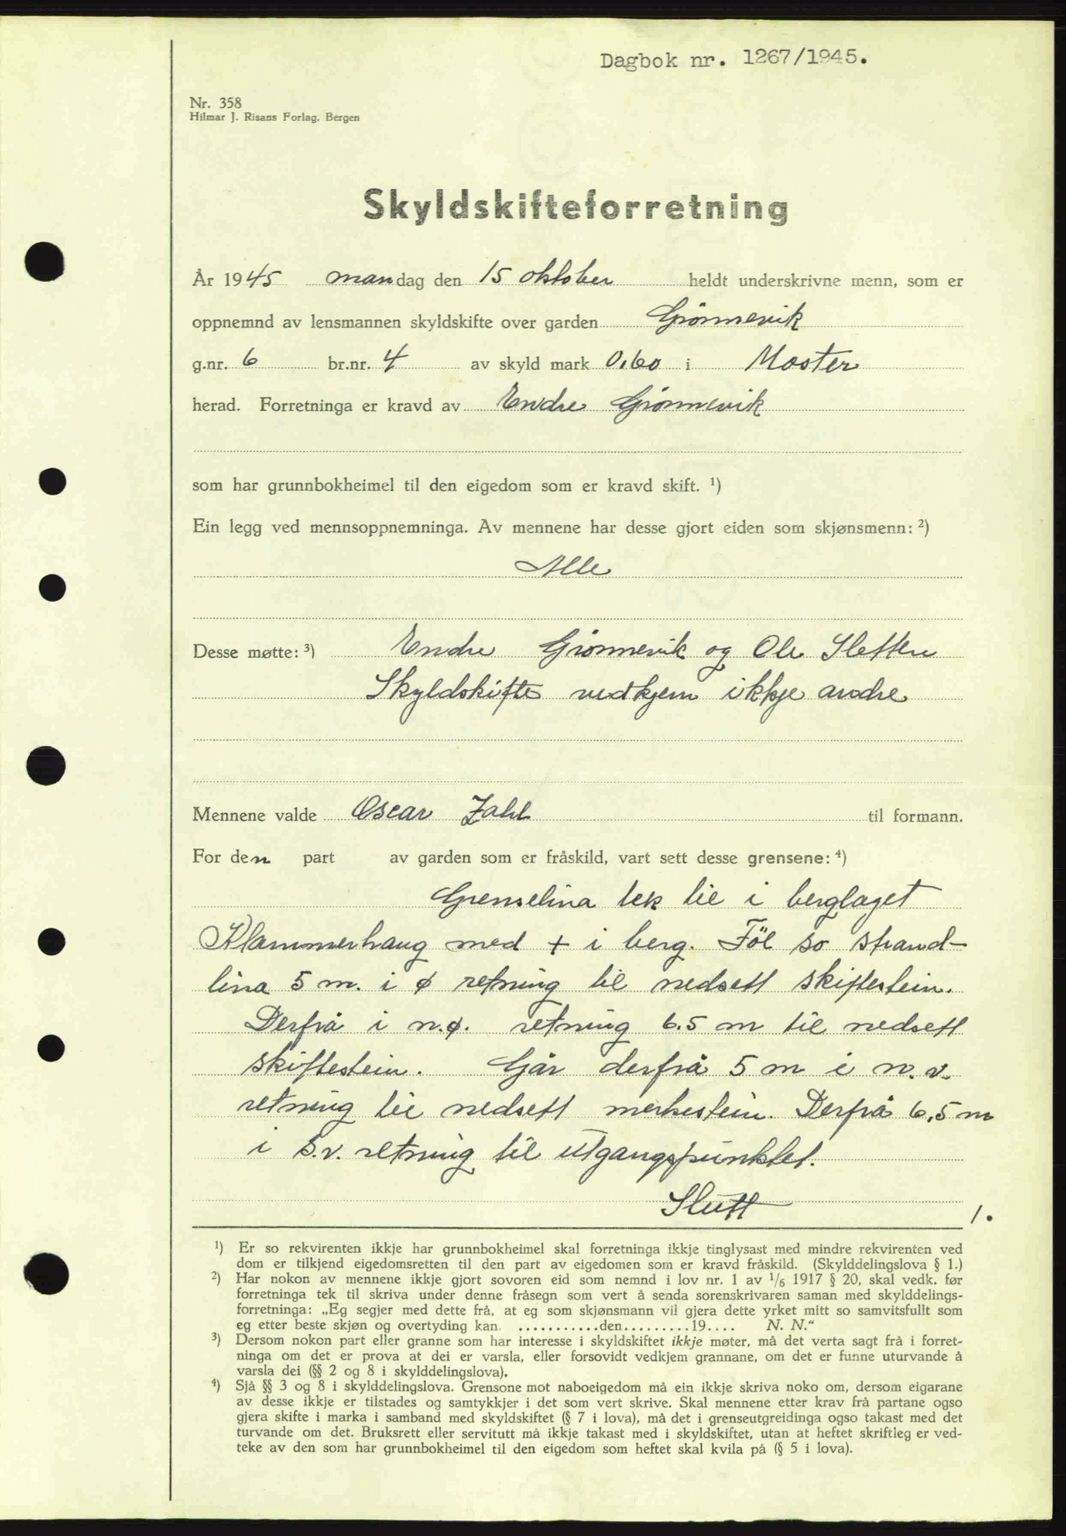 Dagbok nr. 1267/1945.
Nr. 358
Hilmar J. Risans Forlag, Bergen
Skyldskifteforretning
År 1945 mandag den 15 oktober heldt underskrivne menn, som er
oppnemnd av lensmannen skyldskifte over garden Grønnevik
g.nr. 6 br.nr. 4 av skyld mark 0,60 i Moster
herad. Forretninga er kravd av Endre Grønnevik
som har grunnbokheimel til den eigedom som er kravd skift. ¹)
Ein legg ved mennsoppnemninga. Av mennene har desse gjort eiden som skjønsmenn: ²)
Alle
Desse møtte: ³) Endre Grønnevik og Ole Sletten
Skyldskifte vedkjem ikkje andre
Mennene valde Oscar Zahl til formann.
For den part av garden som er fråskild, vart sett desse grensene: ⁴)
Grenselina tek til i berglaget
Klammerhaug med + i berg. Föl so strand-
lina 5 m. i ø retning til nedsett skiftestein.
Derfrå i n.ø. retning 6.5 m til nedsett
skiftestein. Går derfrå 5 m i n.v.
retning til nedsett merkestein. Derfrå 6,5 m
i s.v. retning til utgangspunktet.
Slutt
1.
¹) Er so rekvirenten ikkje har grunnbokheimel skal forretninga ikkje tinglysast med mindre rekvirenten ved
dom er tilkjend eigedomsretten til den part av eigedomen som er kravd fråskild. (Skylddelingslova § 1.)
²) Har nokon av mennene ikkje gjort sovoren eid som nemnd i lov nr. 1 av 1/6 1917 § 20, skal vedk. før
forretninga tek til skriva under denne fråsegn som vert å senda sorenskrivaren saman med skylddelings-
forretninga: „Eg segjer med dette frå, at eg som skjønsmann vil gjera dette yrket mitt so samvitsfullt som
eg etter beste skjøn og overtyding kan. ...........den.........19.... N. N.“
³) Dersom nokon part eller granne som har interesse i skyldskiftet ikkje møter, må det verta sagt frå i forret-
ninga om det er prova at dei er varsla, eller forsovidt vedkjem grannane, om det er funne uturvande å
varsla dei (§§ 2 og 8 i skylddelingslova).
⁴) Sjå §§ 3 og 8 i skylddelingslova. Grensone mot naboeigedom må ein ikkje skriva noko om, dersom eigarane
av desse ikkje er tilstades og samtykkjer i det som vert skrive. Skal mennene etter krav frå partane ogso
gjera skifte i marka i samband med skyldskiftet (§ 7 i lova), må det i grenseutgreidinga ogso takast med det
turvande om det. Bruksrett eller servitutt må ikkje takast med i skyldskiftet, utan at heftet skriftleg er ved-
teke av den som har grunnbokheimel til den eigedom som heftet skal kvila på (§ 5 i lova).